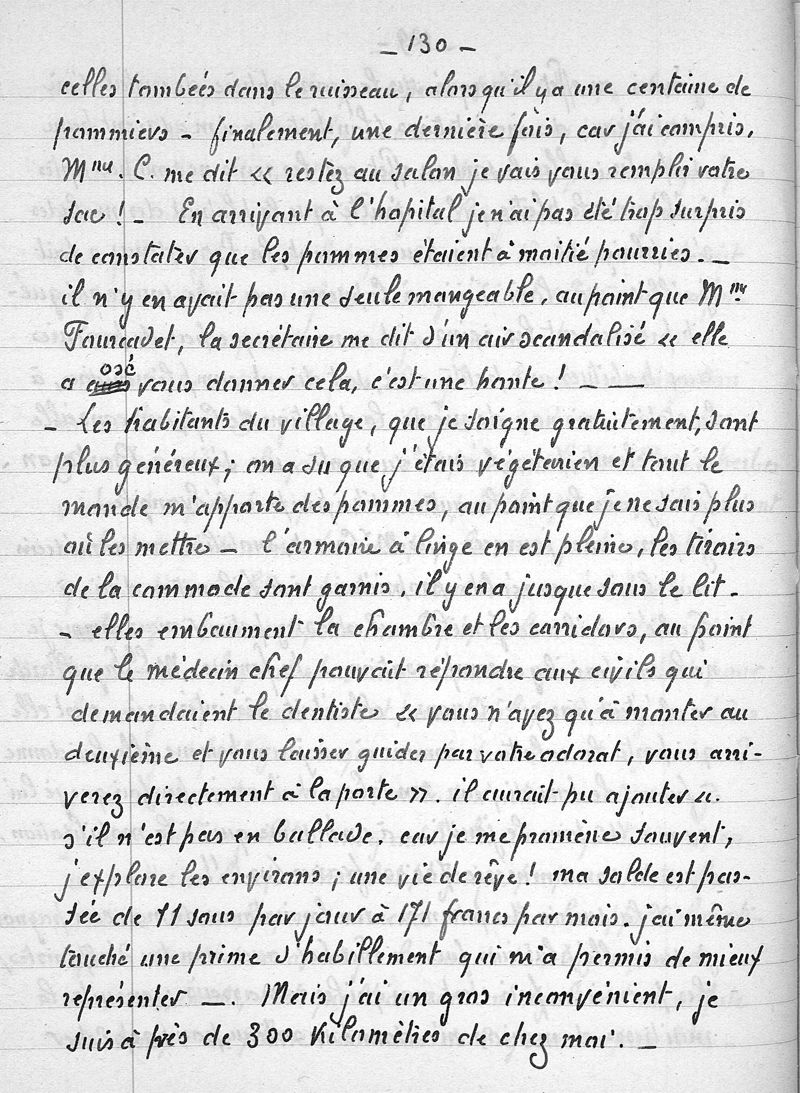 – 130 –
celles tombées dans le ruisseau, alors qu'il y a une centaine de
pommiers – finalement, une dernière fois, car j'ai compris,
Mme. C. me dit « restez au salon je vais vous remplir votre
sac ! – En arrivant à l'hopital je n'ai pas été trop surpris
de constater que les pommes étaient à moitié pourries. –
il n'y en avait pas une seule mangeable, au point que Mme
Fourcadet, la secrétaire me dit d'un air scandalisé « elle
osé
a vous donner cela, c'est une honte ! – —
– Les habitants du village, que je soigne gratuitement, sont
plus généreux ; on a su que j'étais végétarien et tout le
monde m'apporte des pommes, au point que je ne sais plus
où les mettre – l'armoire à linge en est pleine, les tiroirs
de la commode sont garnis, il y en a jusque sous le lit.
– elles embaument la chambre et les corridors, au point
que le médecin chef pouvait répondre aux civils qui
demandaient le dentiste « vous n'avez qu'à monter au
deuxième et vous laisser guider par votre odorat, vous arri-
verez directement à la porte ». il aurait pu ajouter «.
s'il n'est pas en ballade. car je me promène souvent,
j'explore les environs ; une vie de rêve ! ma solde est pas-
sée de 11 sous par jour à 171 francs par mois. j'ai même
touché une prime d'habillement qui m'a permis de mieux
représenter —. Mais j'ai un gros inconvénient, je
suis à près de 300 Kilomètres de chez moi. –